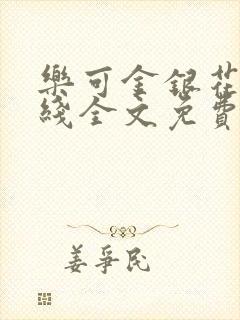 樂可金銀花
綫全文免費
姜爭民